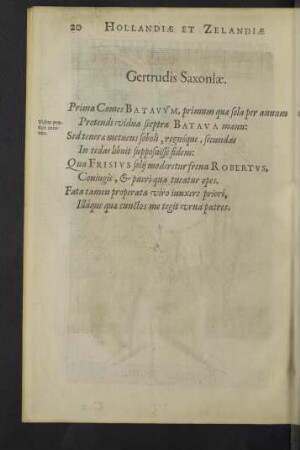 20 HOLLANDIÆ ET ZELANDIÆ
Gertrudis Saxoniæ.
Prima Comes BATAVVM, primum quæ sola per annum
Pretendi vidua sceptra BATAVA manu:
Sed tenera metuens soboli, regnique, secundas
In tedas libuit supposuisse fidem:
Qua FRISIVS soli moderetur frena ROBERTVS,
Coniugis, & pueri qua tueatur opes.
Fata tamen properata viro iunxere priori,
Illáque quæ cunctos me tegit vrna patres.